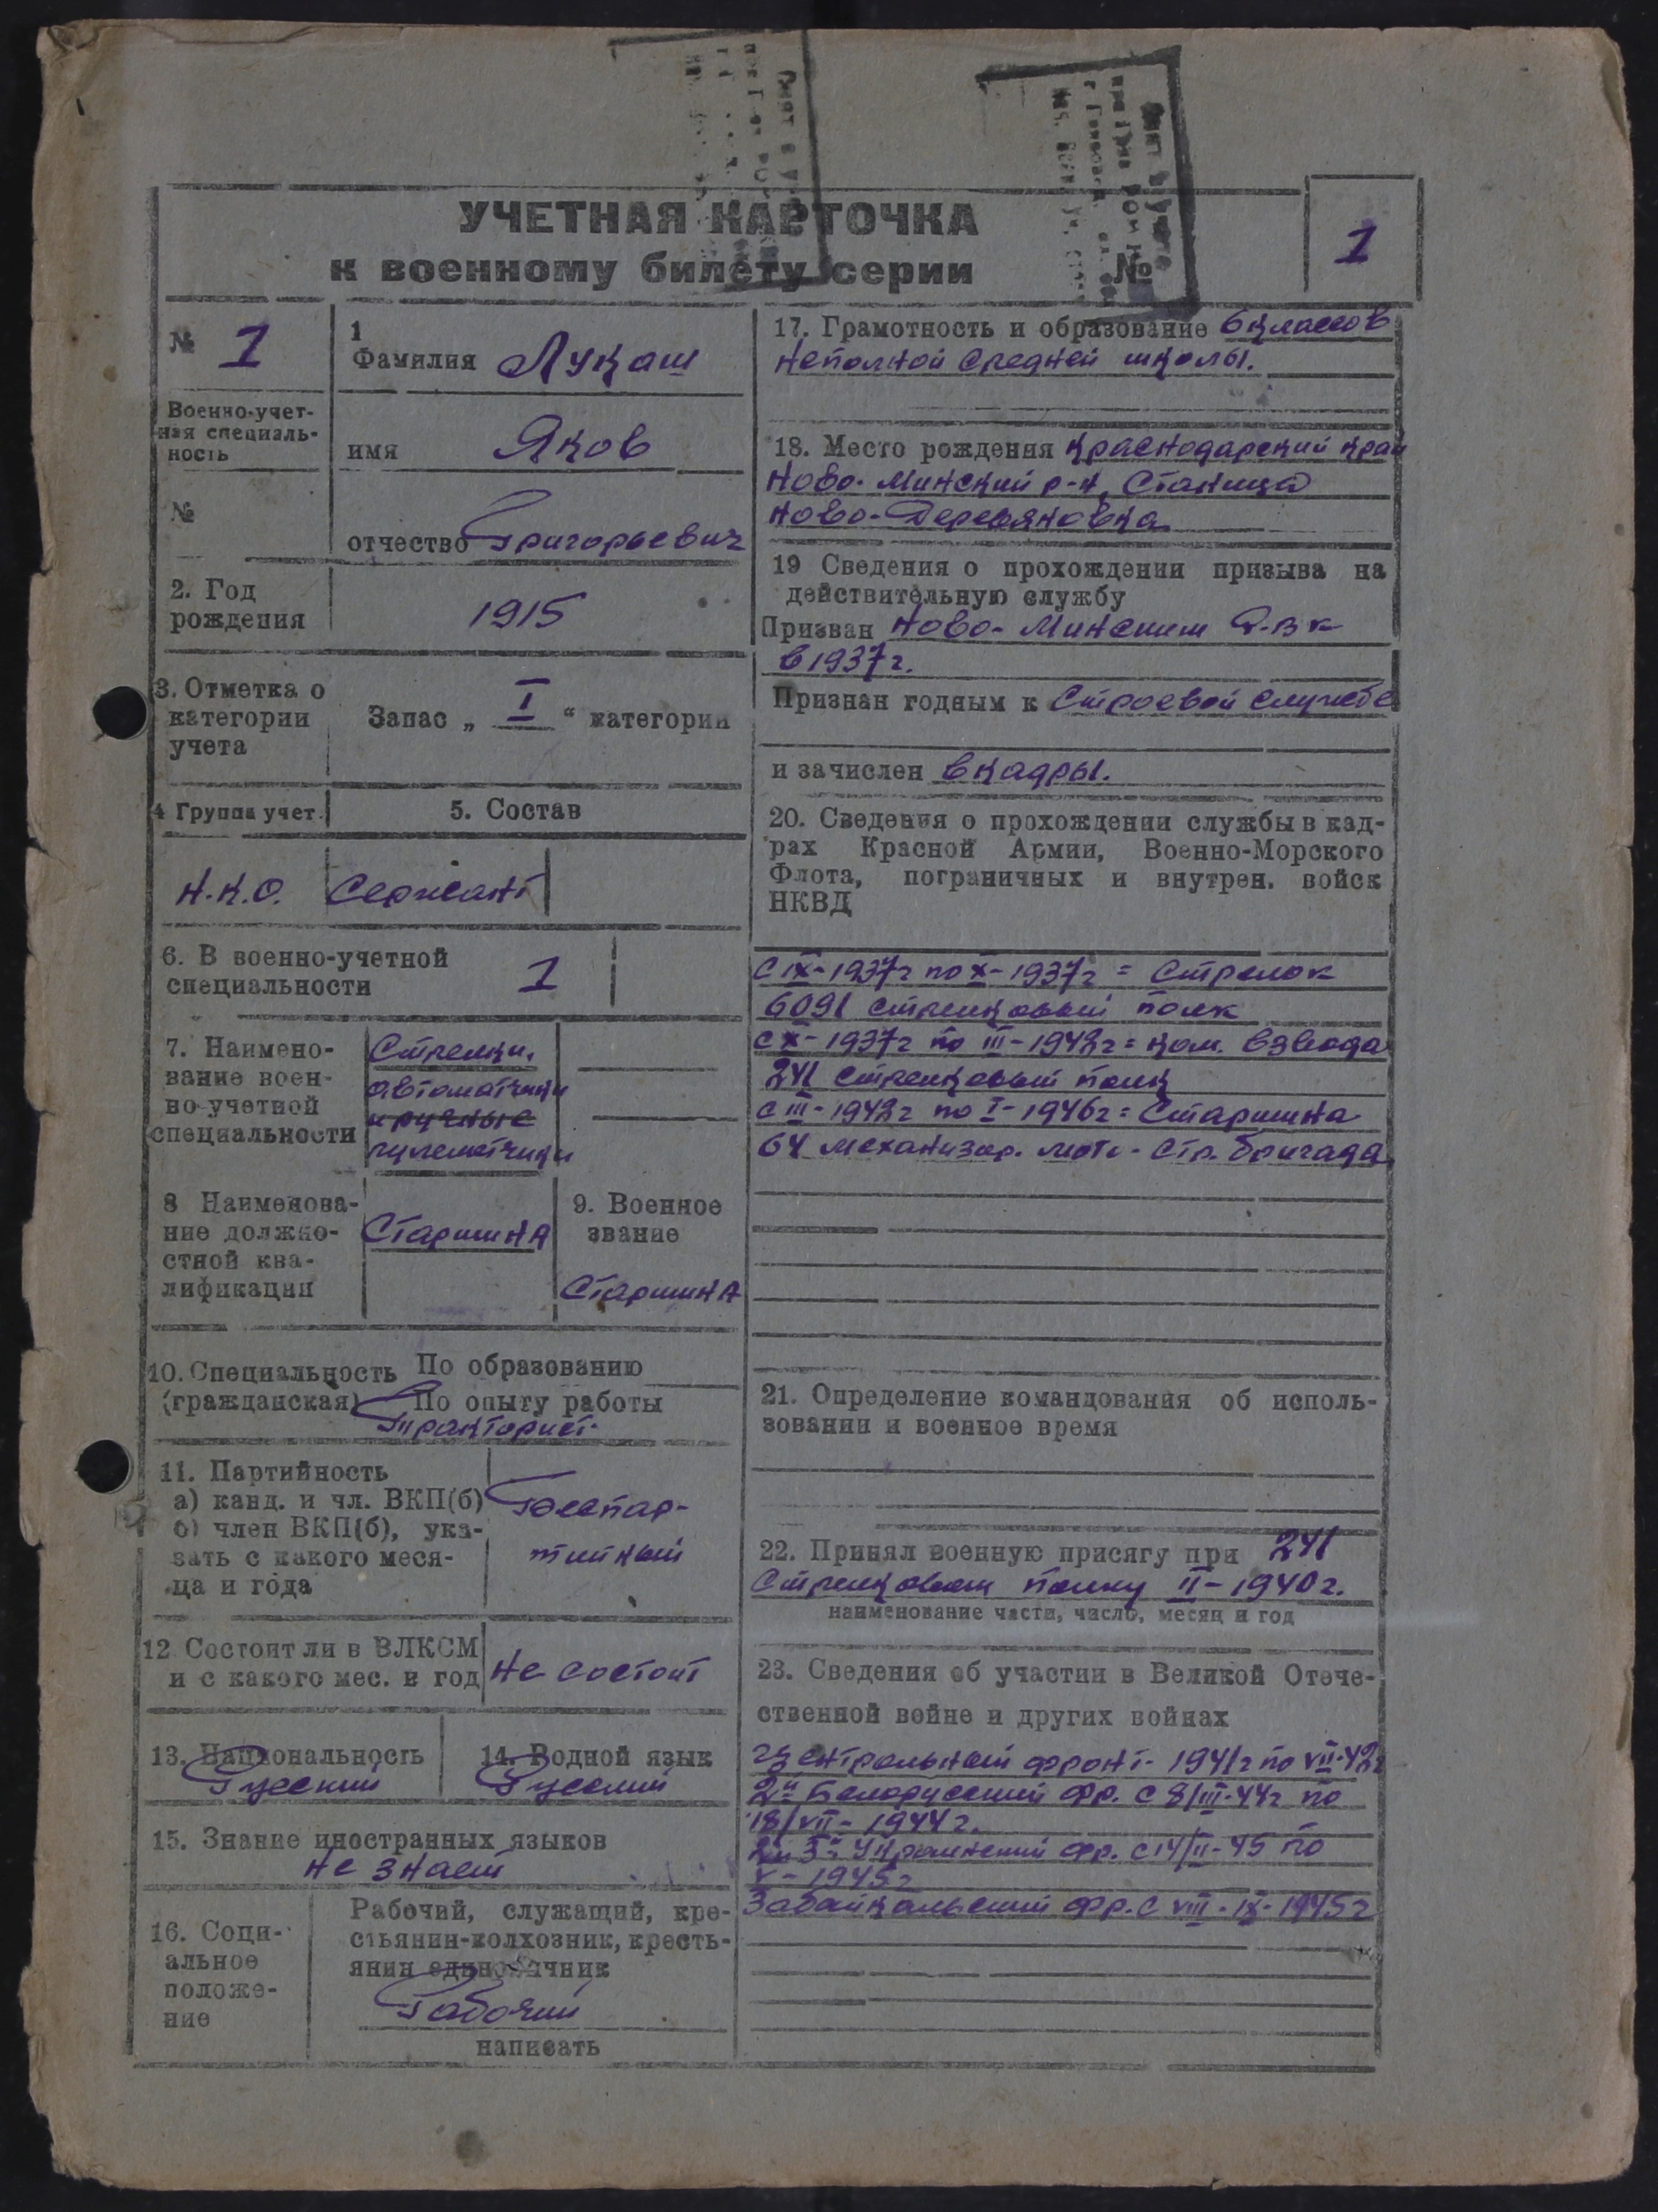 УЧЕТНАЯ КАРТОЧКА
к военному билету серии №
1
№ 1
Военно-учет-
ная специаль-
ность
№
1
Фамилия Лукаш
имя Яков
отчество Григорьевич
2. Год
рождения
1915
3. Отметка о
категории
учета
Запас „ I “ категории
4 Группа учет.
5. Состав
Н.К.О.
Сержант
6. В военно-учетной
специальности
1
7. Наимено-
вание воен-
но-учетной
специальности
Стрелки,
автоматчики
и ручные
пулеметчики
8 Наименова-
ние должно-
стной ква-
лификации
Старшина
9. Военное
звание
Старшина
10. Специальность По образованию
(гражданская) По опыту работы
Тракторист
11. Партийность
а) канд. и чл. ВКП(б)
б) член ВКП(б), ука-
зать с какого меся-
ца и года
Беспар-
тийный
12 Состоит ли в ВЛКСМ
и с какого мес. и год
Не состоит
13. Национальность
Русский
14. Родной язык
Русский
15. Знание иностранных языков
не знает
16. Соци-
альное
положе-
ние
Рабочий, служащий, кре-
стьянин-колхозник, кресть-
янин единоличник
Рабочий
написать
17. Грамотность и образование 6 классов
неполной средней школы.
18. Место рождения Краснодарский край
Ново-Минский р-н, Станица
Ново-Деревяновка
19 Сведения о прохождении призыва на
действительную службу
Призван Ново-Минским Р.В.К
в 1937г.
Признан годным к Строевой службе
и зачислен в кадры.
20. Сведения о прохождении службы в кад-
рах Красной Армии, Военно-Морского
Флота, пограничных и внутрен. войск
НКВД
с IX-1937г по X-1937г = Стрелок
6091 стрелковый полк
с X-1937г по III-1942г = ком. взвода
241 стрелковый полк
с III-1942г по I-1946г = Старшина
64 механизир. мото-стр. бригада
21. Определение командования об исполь-
зовании и военное время
22. Принял военную присягу при 241
Стрелковом полку II-1940г.
наименование части, число, месяц и год
23. Сведения об участии в Великой Отече-
ственной войне и других войнах
Центральный фронт - 1941г по VII-42г
2й Белорусский фр. с 8/III-44г по
18/VII-1944г.
2й 3й Украинский фр. с 14/II-45 по
V-1945г
Забайкальский фр. с VIII-IX-1945г